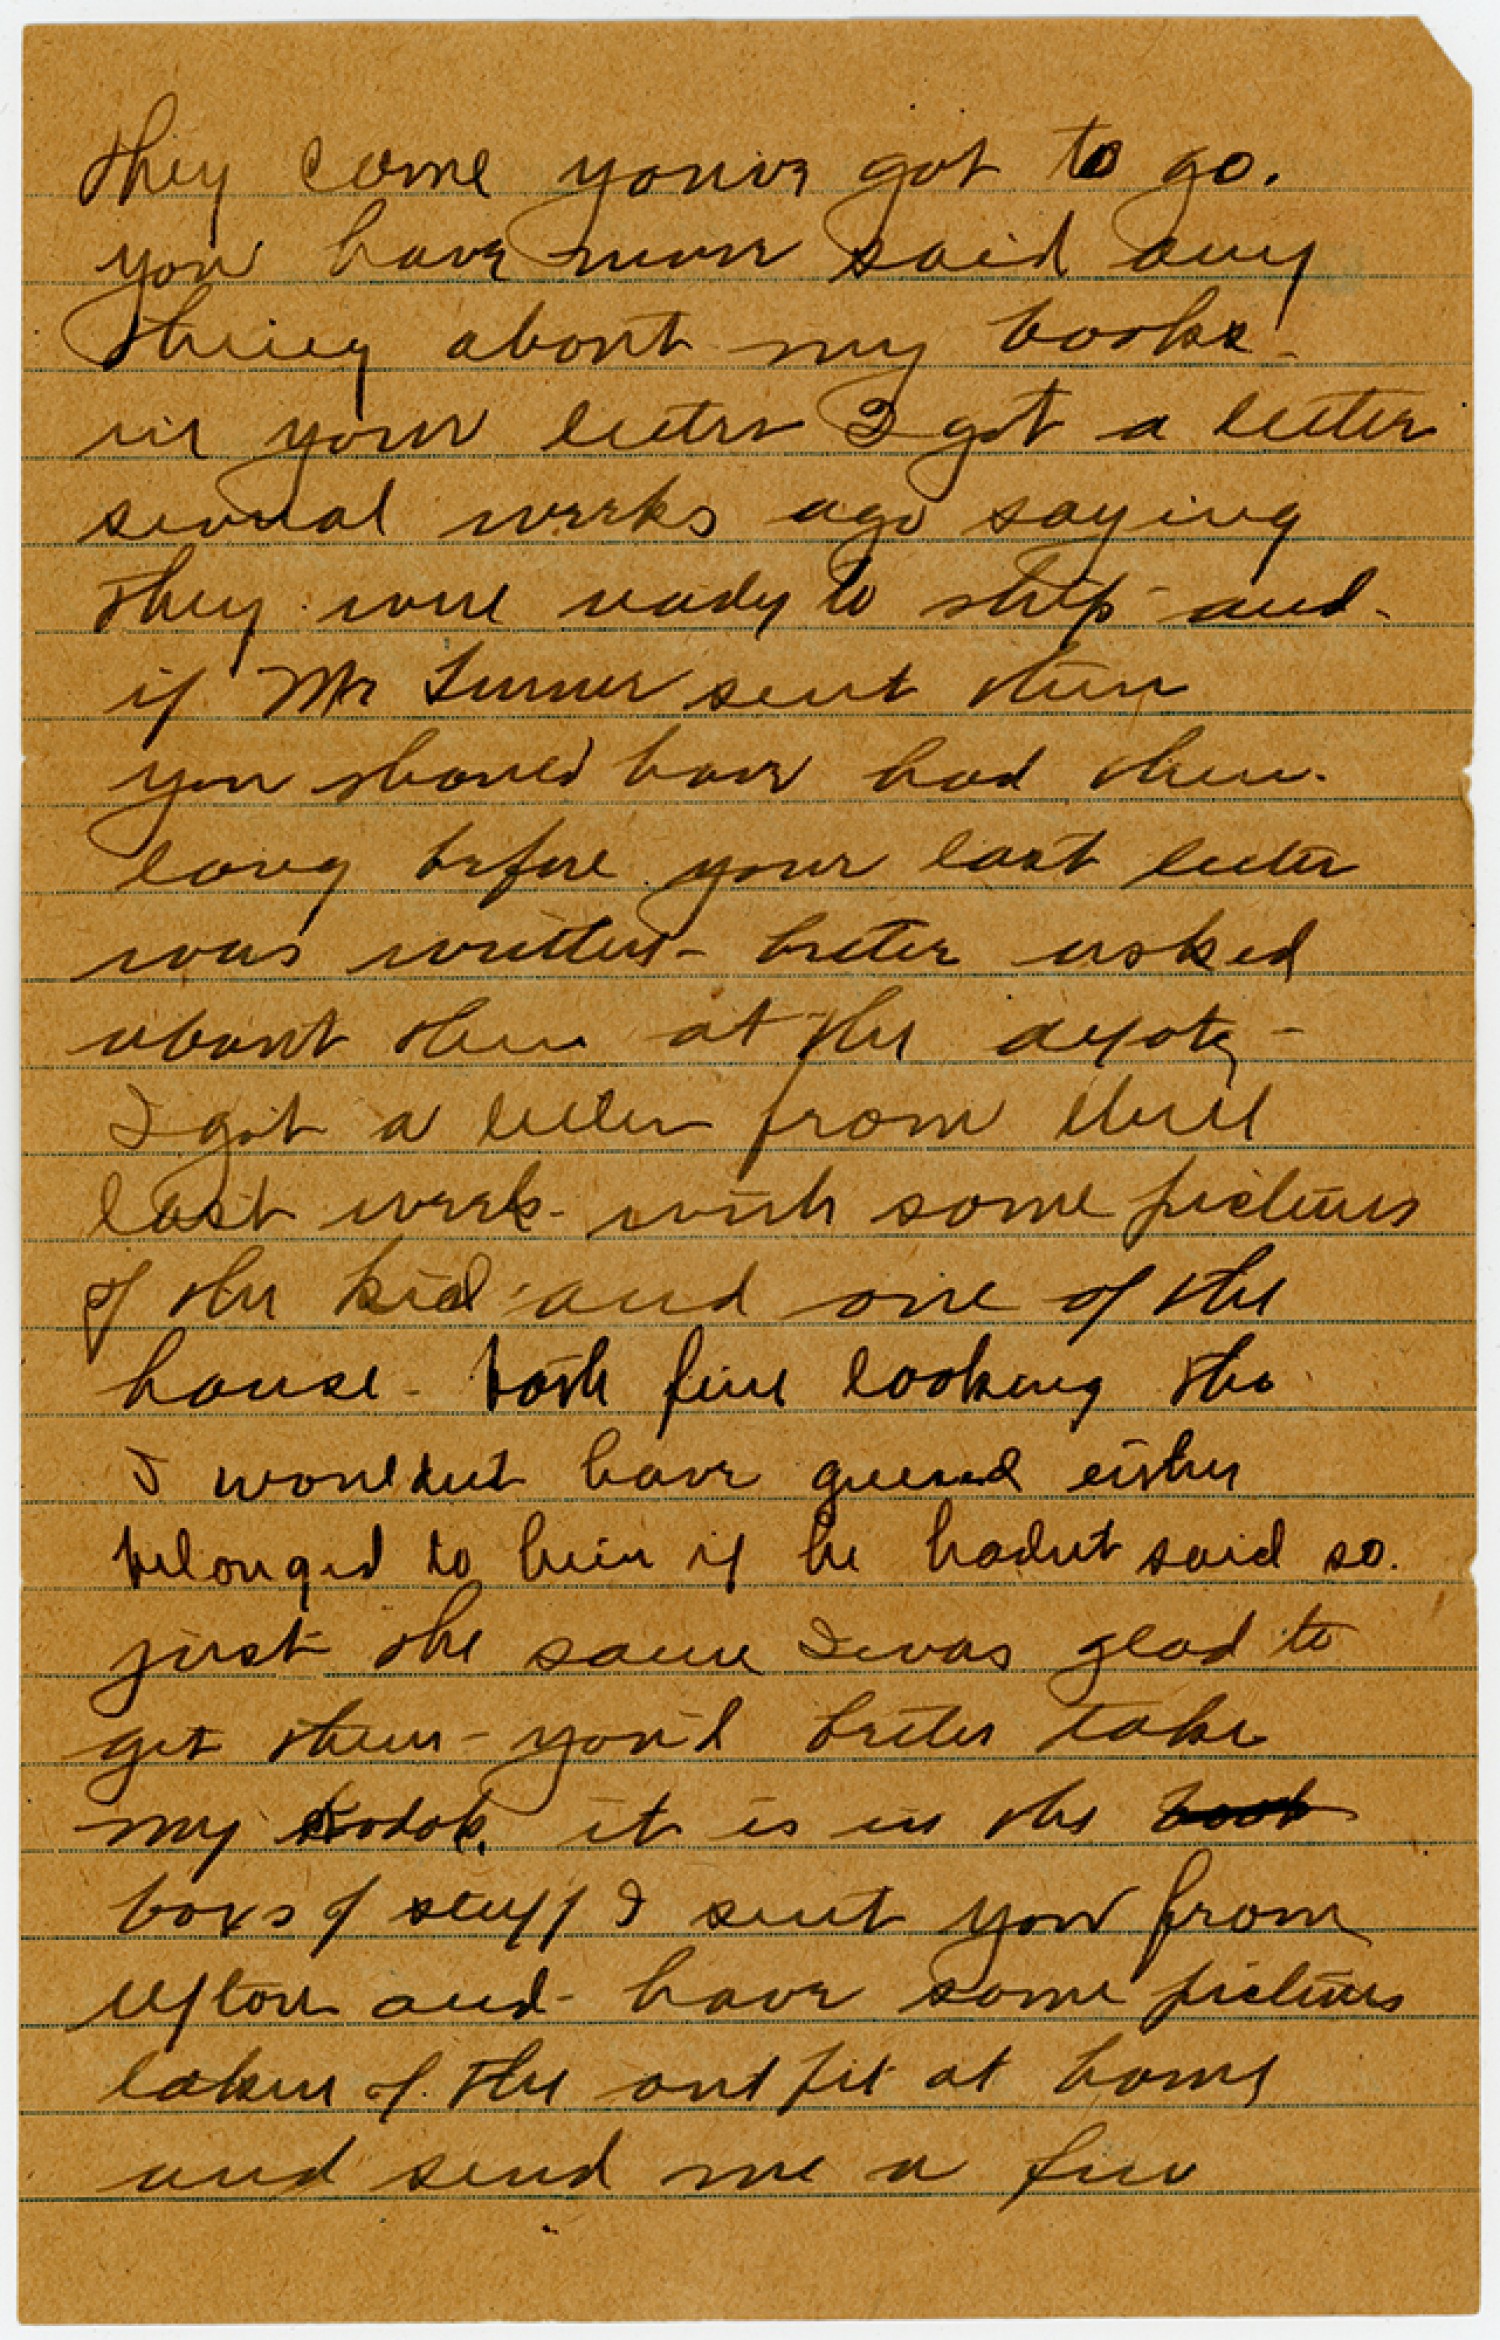 they come youve got to go.
you have never said any
thing about my books -
in your letter I got a letter
several weeks ago saying
they were ready to ship - and -
if Mr Turner sent them
you should have had them -
long before your last letter
was written - better asked
about them at the depot -
I got a letter from
last week - with some pictures
of the kid and one of the
house - both fine looking tho
I wouldnt have guessed either
belonged to him if he hadnt said so.
just the same I was glad to
get them - you'l better take
my kodak, it is in the
boxs of stuff I sent you from
Upton and - have some pictures
taken of the outfit at home
and send me a few